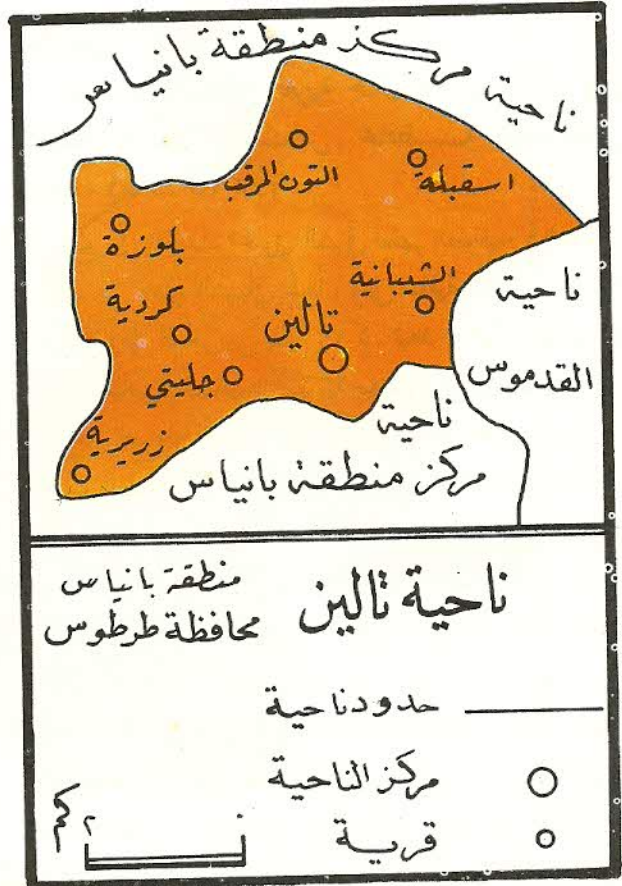 ناحية مركز منطقة بانياس
التون المرقب
اسقبلة
بلوزة
الشيبانية
كردية
تالين
جليتي
زريرية
ناحية
القدموس
ناحية
مركز منطقة بانياس
ناحية تالين
منطقة بانياس
محافظة طرطوس
حدود ناحية
مركز الناحية
قرية
٠ ٢ كم